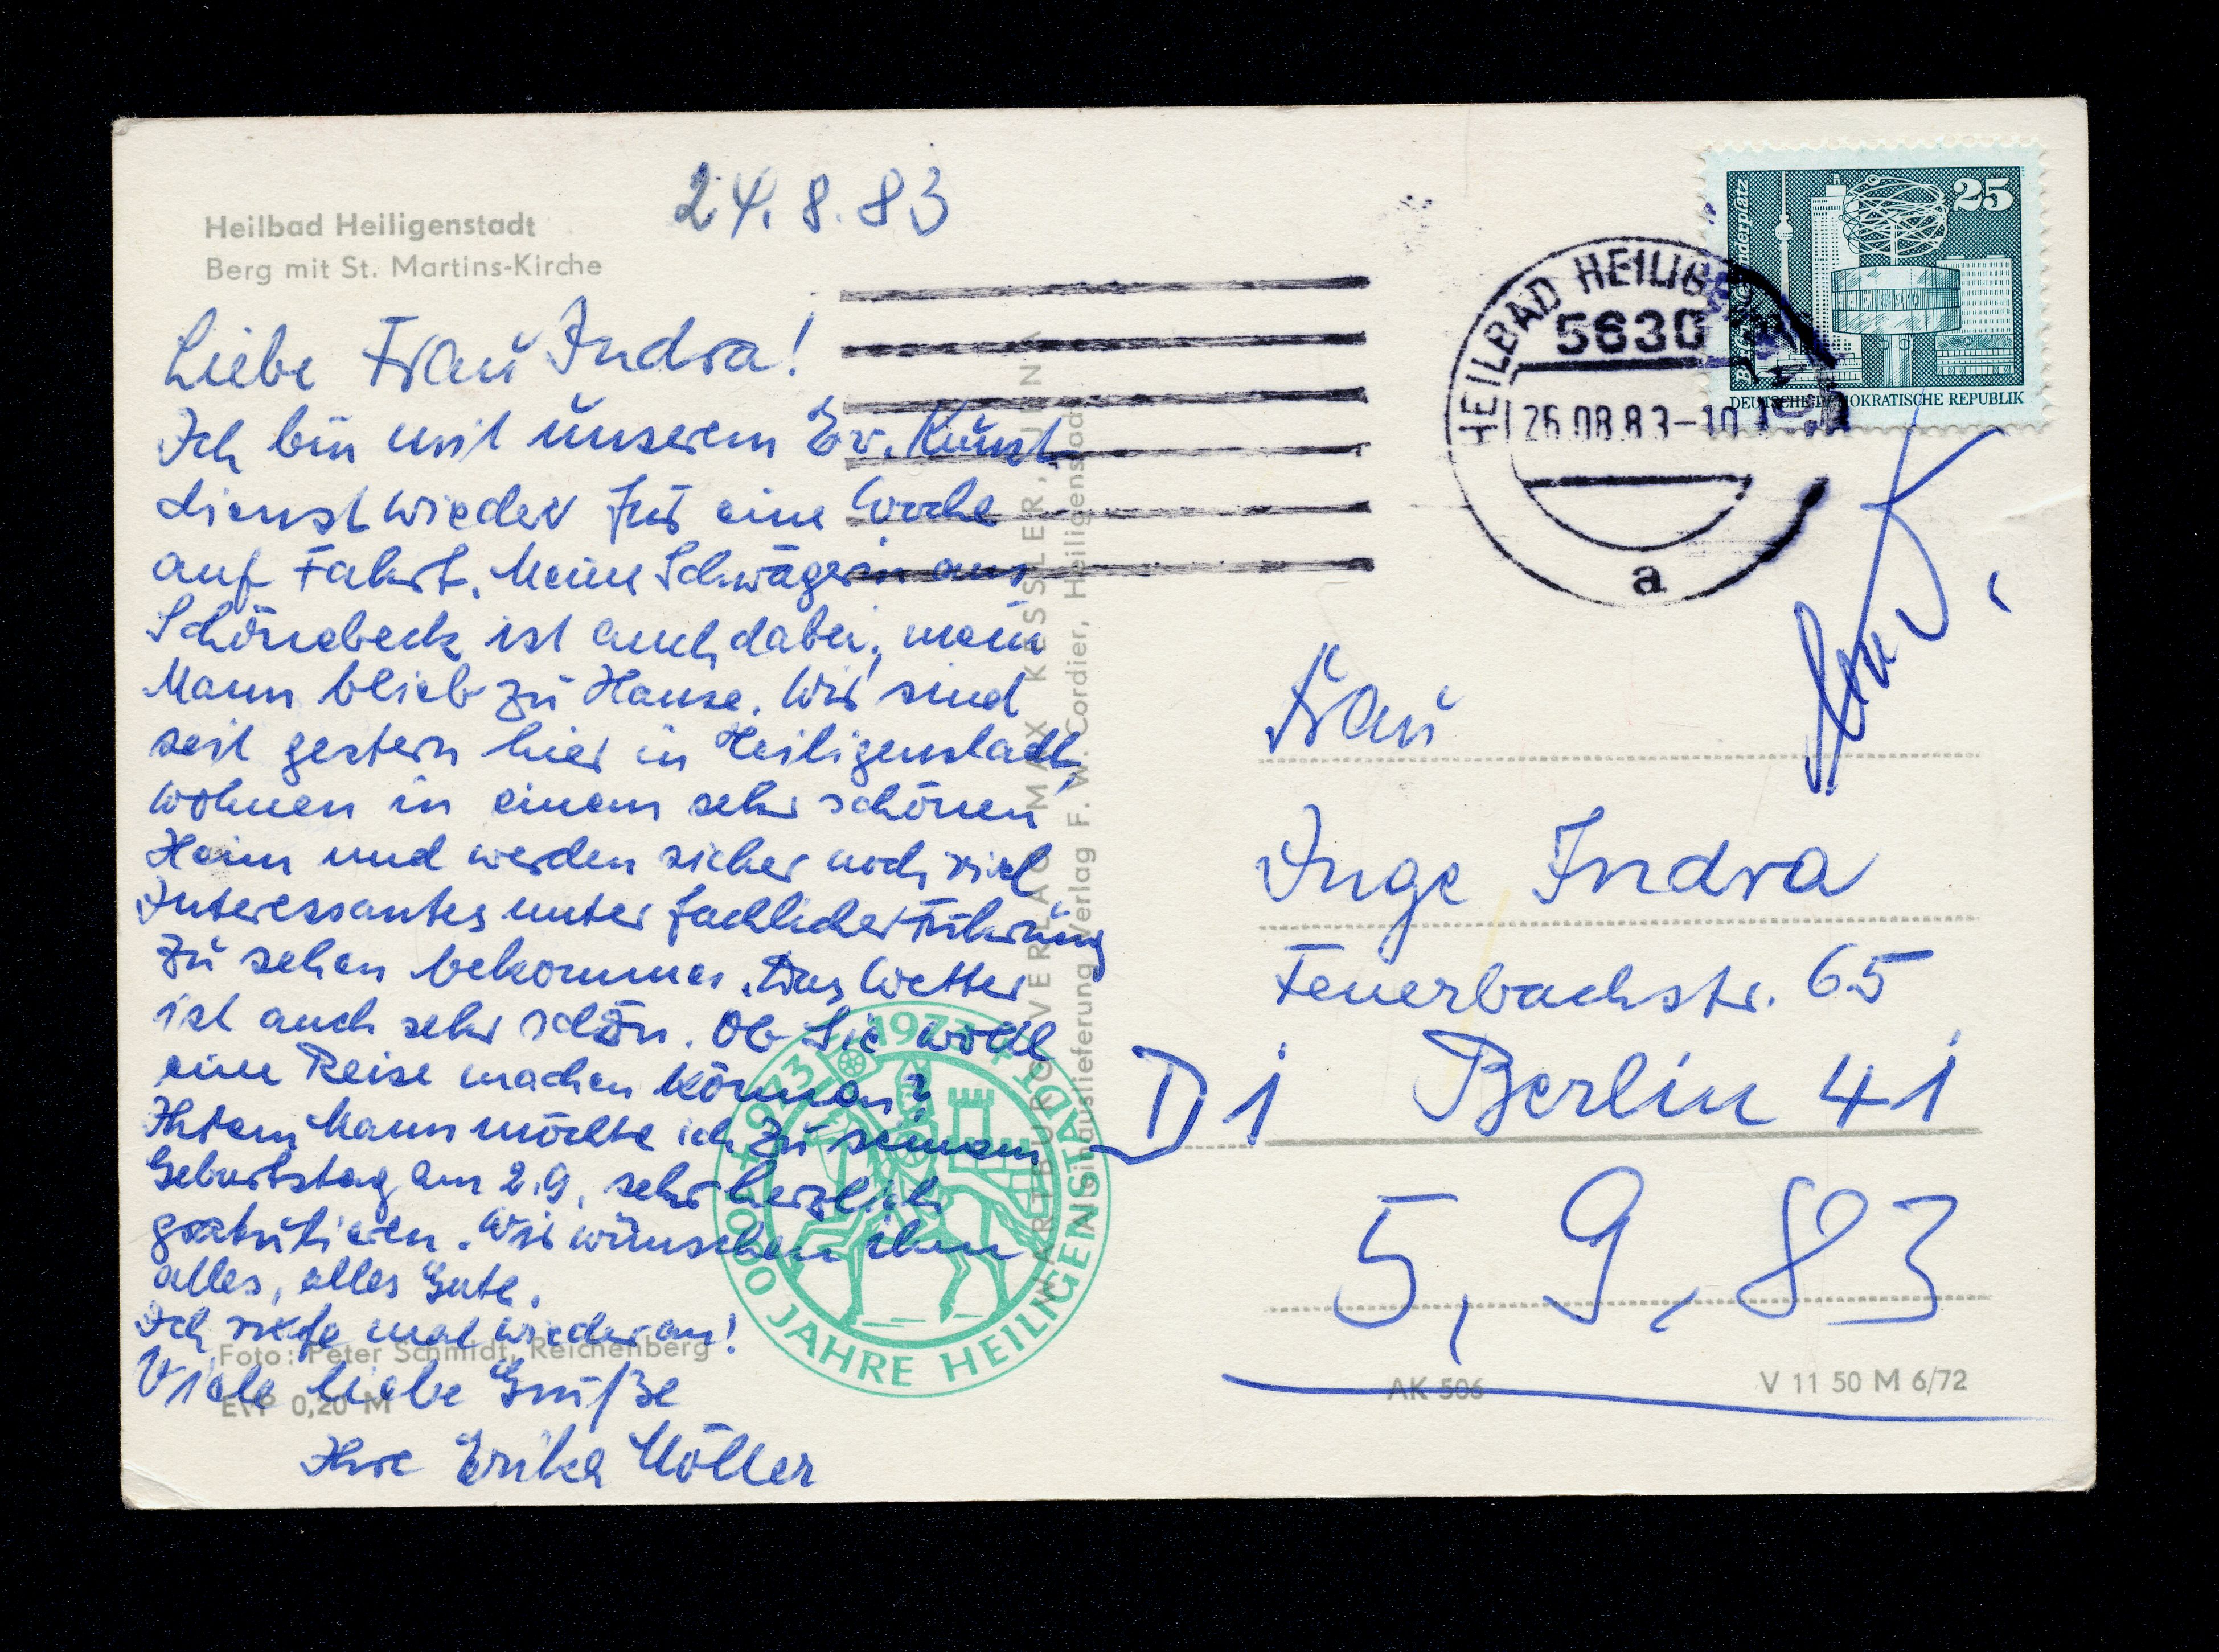 Heilbad Heiligenstadt
Berg mit St. Martins-Kirche
24.8.83
Liebe Frau Indra!
Ich bin mit unserem Ev. Kunst
dienst wieder für eine Woche
auf Fahrt. Meine Schwägerin aus
Schönebeck ist auch dabei, mein
Mann blieb zu Hause. Wir sind
seit gestern hier in Heiligenstadt,
wohnen in einem sehr schönen
Heim und werden sicher noch viel
Interessantes unter fachlicher Führung
zu sehen bekommen. Das Wetter
ist auch sehr schön. Ob Sie wohl
eine Reise machen können?
Ihrem Mann möchte ich zu seinem
Geburtstag am 2.9. sehr herzlich
gratulieren. Wir wünschen ihm
alles, alles Gute.
Ich rufe mal wieder an!
Viele liebe Grüße
Ihre Erika Möller
Foto: Peter Schmidt, Reichenberg
EVP 0,20 M
WARTBURG VERLAG MAX KESSLER, JENA
Alleinauslieferung Verlag F. W. Cordier, Heiligenstadt
973 1973 HEILIGENSTADT
1000 JAHRE HEILIGENSTADT
HEILBAD HEILIGEN
5630
26.08.83-10
a
25
Berlin, Alexanderplatz
DEUTSCHE DEMOKRATISCHE REPUBLIK
Frau
Inge Indra
Feuerbachstr. 65
D 1 Berlin 41
5,9,83
AK 506
V 11 50 M 6/72